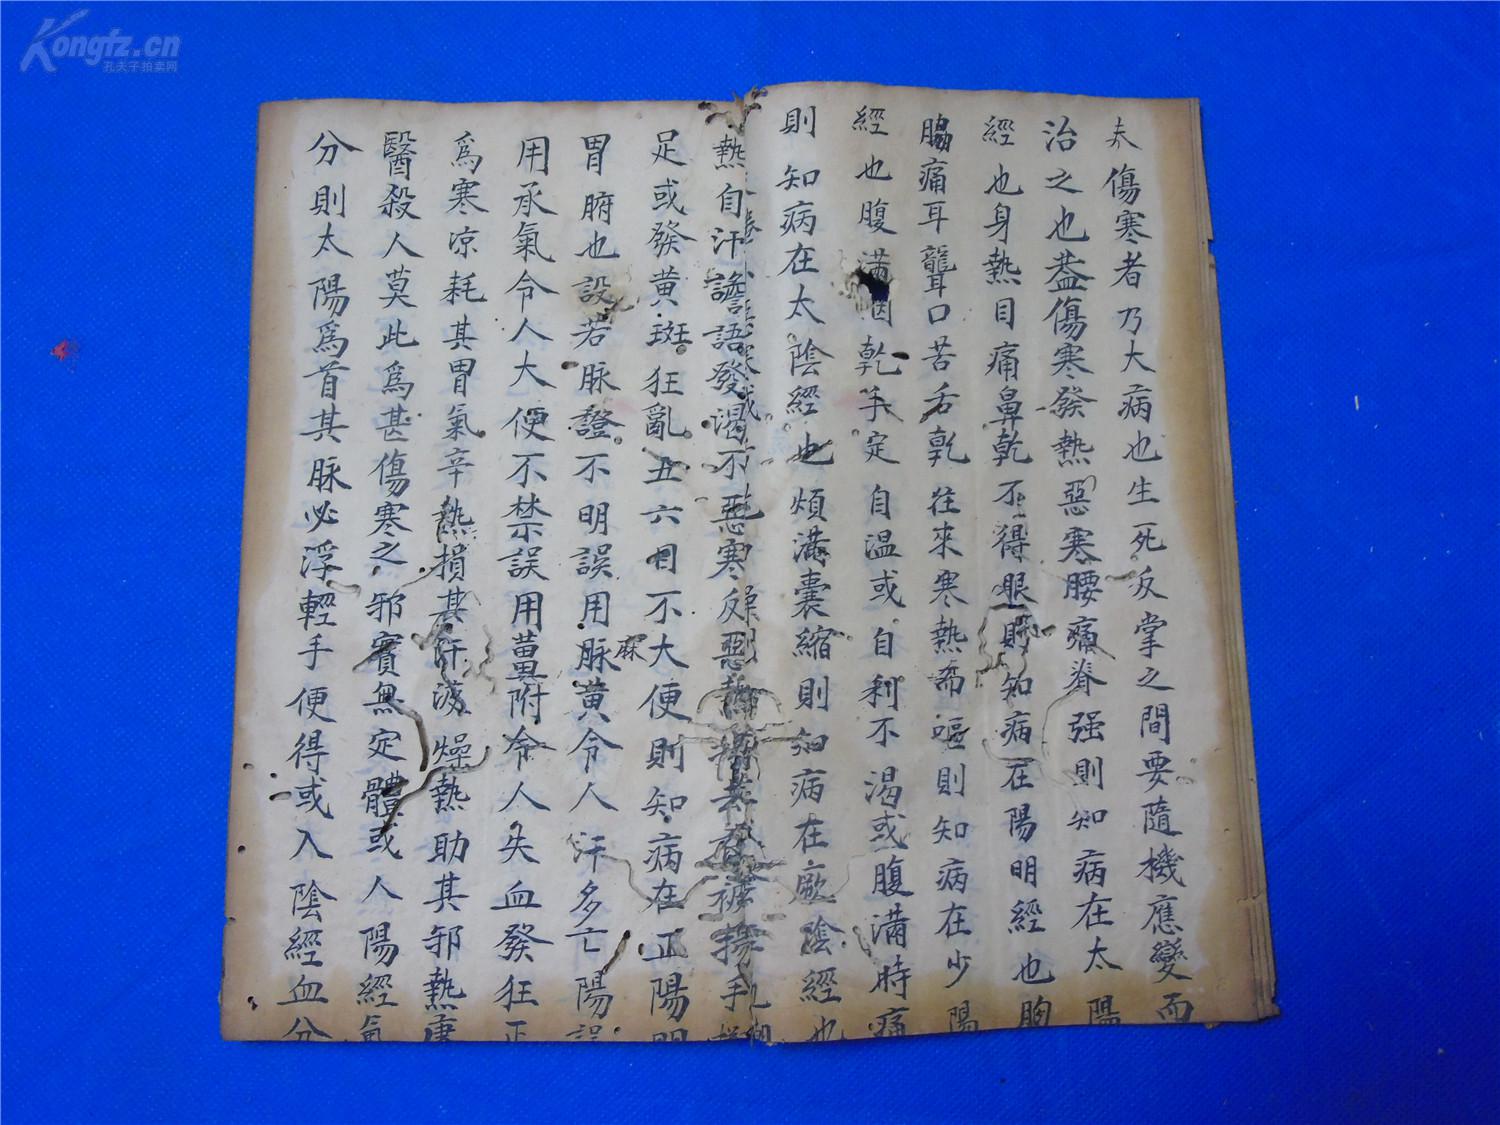 夫傷寒者乃大病也生死反掌之間要隨機應變而
治之也盖傷寒發熱惡寒腰痛脊强則知病在太陽
經也身熱目痛鼻乾不得眠則知病在陽明經也胸
脇痛耳聾口苦舌乾往來寒熱而嘔則知病在少陽
經也腹滿咽乾手足自温或自利不渴或腹滿時痛
則知病在太陰經也煩滿囊縮則知病在厥陰經也
熱自汗譫語發渴不惡寒反惡熱揭去衣被揚手
足或發黄斑狂亂五六日不大便則知病在正陽明
胃腑也設若脉證不明誤用脉麻黄令人汗多亡陽誤
用承氣令人大便不禁誤用薑附令人失血發狂正
爲寒凉耗其胃氣辛熱損其汗液燥熱助其邪熱庸
醫殺人莫此爲甚傷寒之邪實無定體或人陽經氣
分則太陽爲首其脉必浮輕手便得或入陰經血分
Kongfz.cn
孔夫子拍卖网